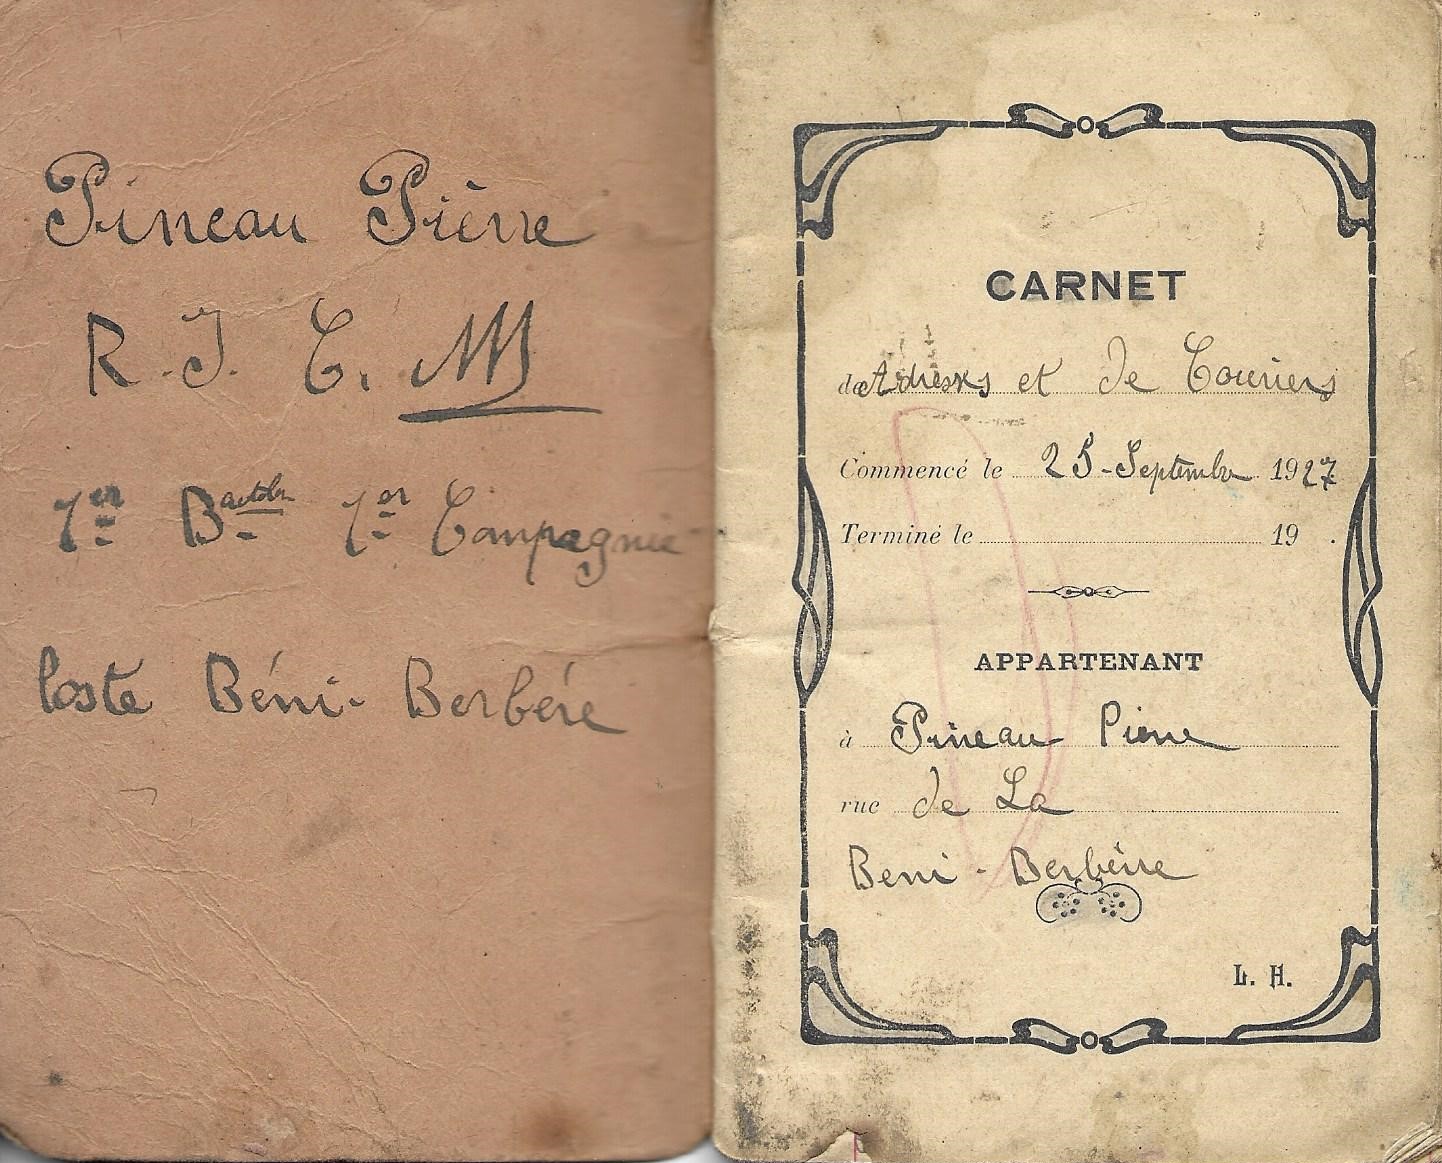 Pineau Pièrre
R. I. C. M
1er Baitollon 1er Compagnie
Poste Béni-Berbére
CARNET
de Adresses et de Couriers
Commencé le 25-Septembre 1927
Terminé le 19 .
APPARTENANT
à Pineau Pierre
rue de La
Beni-Berbére
L. H.